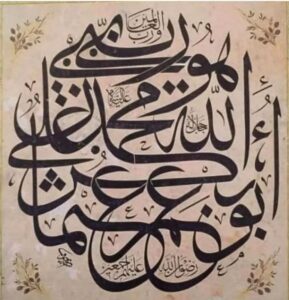 ورب العالمين
هو ربي
الله جل جلاله
محمد عليه السلام
أبو بكر عمر عثمان علي
رضوان الله عليهم أجمعين